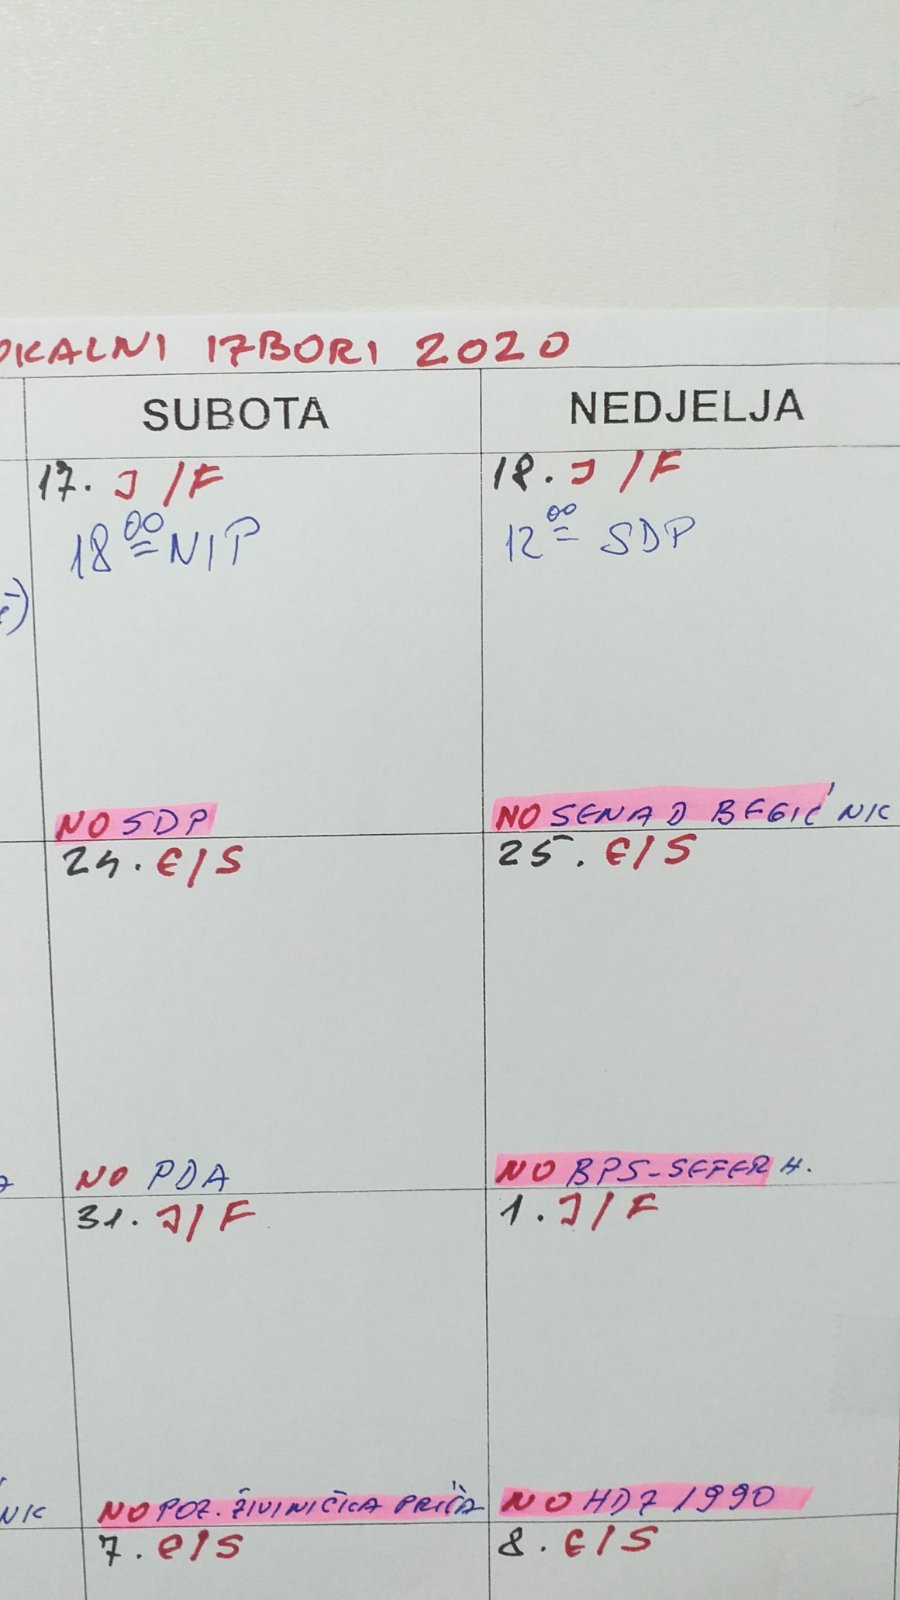 OKALNI IZBORI 2020
SUBOTA NEDJELJA
17. J/F 18. J/F
18 00 NIP 12 00 SDP
NO SDP NO SENAD BEGIĆ NIK
24. E/S 25. E/S
NO PDA NO BPS-SEFER H.
31. J/F 1. J/F
NIK NO POZ. ŽIVINIČKA PRIČA NO HDZ 1990
7. E/S 8. E/S